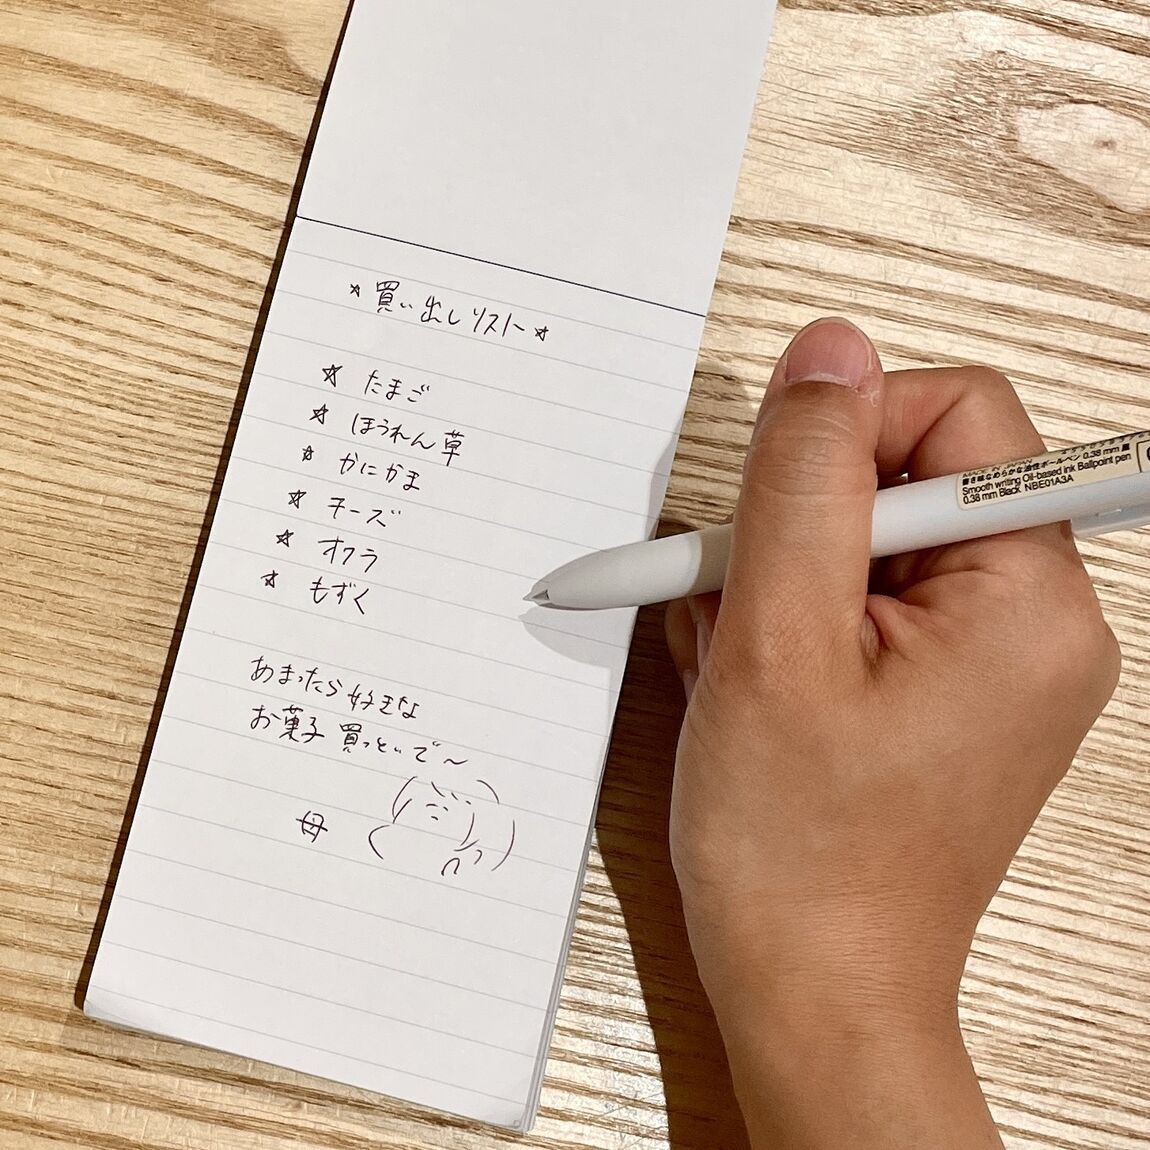 ☆買い出しリスト☆
☆ たまご
☆ ほうれん草
☆ かにかま
☆ チーズ
☆ オクラ
☆ もずく
あまったら好きな
お菓子買っといで〜
母
MADE IN JAPAN
書き味なめらかな油性ボールペン 0.38 mm 黒
Smooth writing Oil-based ink Ballpoint pen
0.38 mm Black NBE01A3A